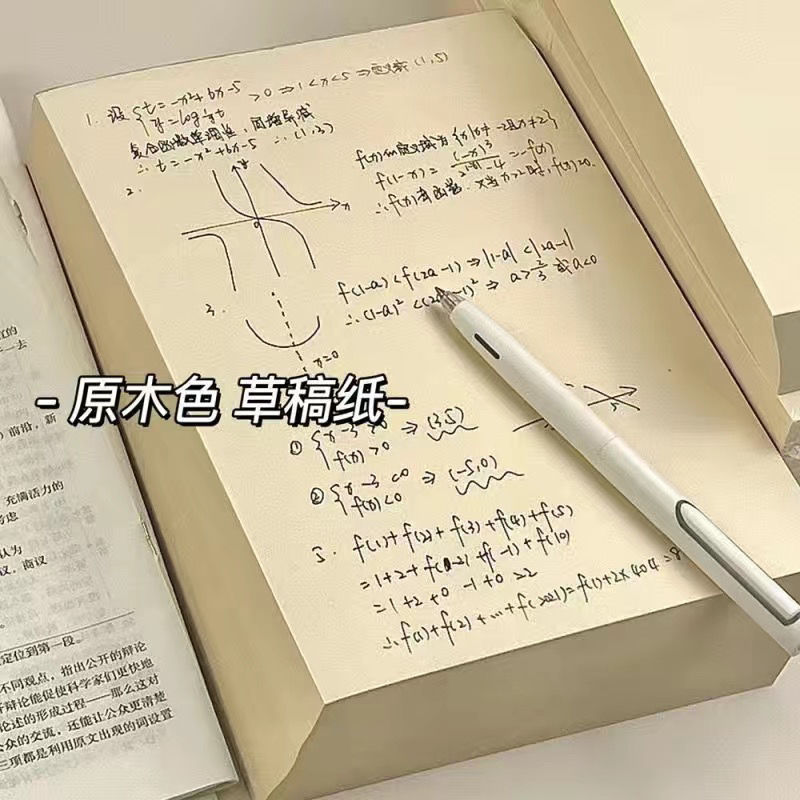 1. 设{t=-x²+6x-5 >0 ⇒1<x<5 ⇒定义域(1,5)
y=log½t
复合函数单调性,同增异减
∴ t=-x²+6x-5 ∴ (1,3)
2.
y
x
0
f(x)的定义域为{x|x≠-2且x≠2}
f(-x)= (-x)³/2|-x|-4 =-f(x)
∴f(x)奇函数. 又当x>2时,f(x)>0.
3.
f(1-a)<f(2a-1)⇒|1-a|<|2a-1|
∴(1-a)²<(2a-1)²⇒ a>2/3 或a<0
x=0
- 原木色 草稿纸-
① {x-3>0 ⇒ (3,5)
f(x)>0
② {x-3<0 ⇒ (-5,0)
f(x)<0
5. f(1)+f(2)+f(3)+f(4)+f(5)
=1+2+f(-2)+f(-1)+f(0)
=1+2+0-1+0=2
∴f(1)+f(2)+…+f(2021)=f(1)+2×404=8
宜的
一去
前沿,新
充满活力的
考虑
认为
议,商议
定位到第一段。
不同观点,指出公开的辩论
辩论能促使科学家们更快地
论述的形成过程——那么这对
众的交流,还能让公众更清楚
三项都是利用原文出现的词设置